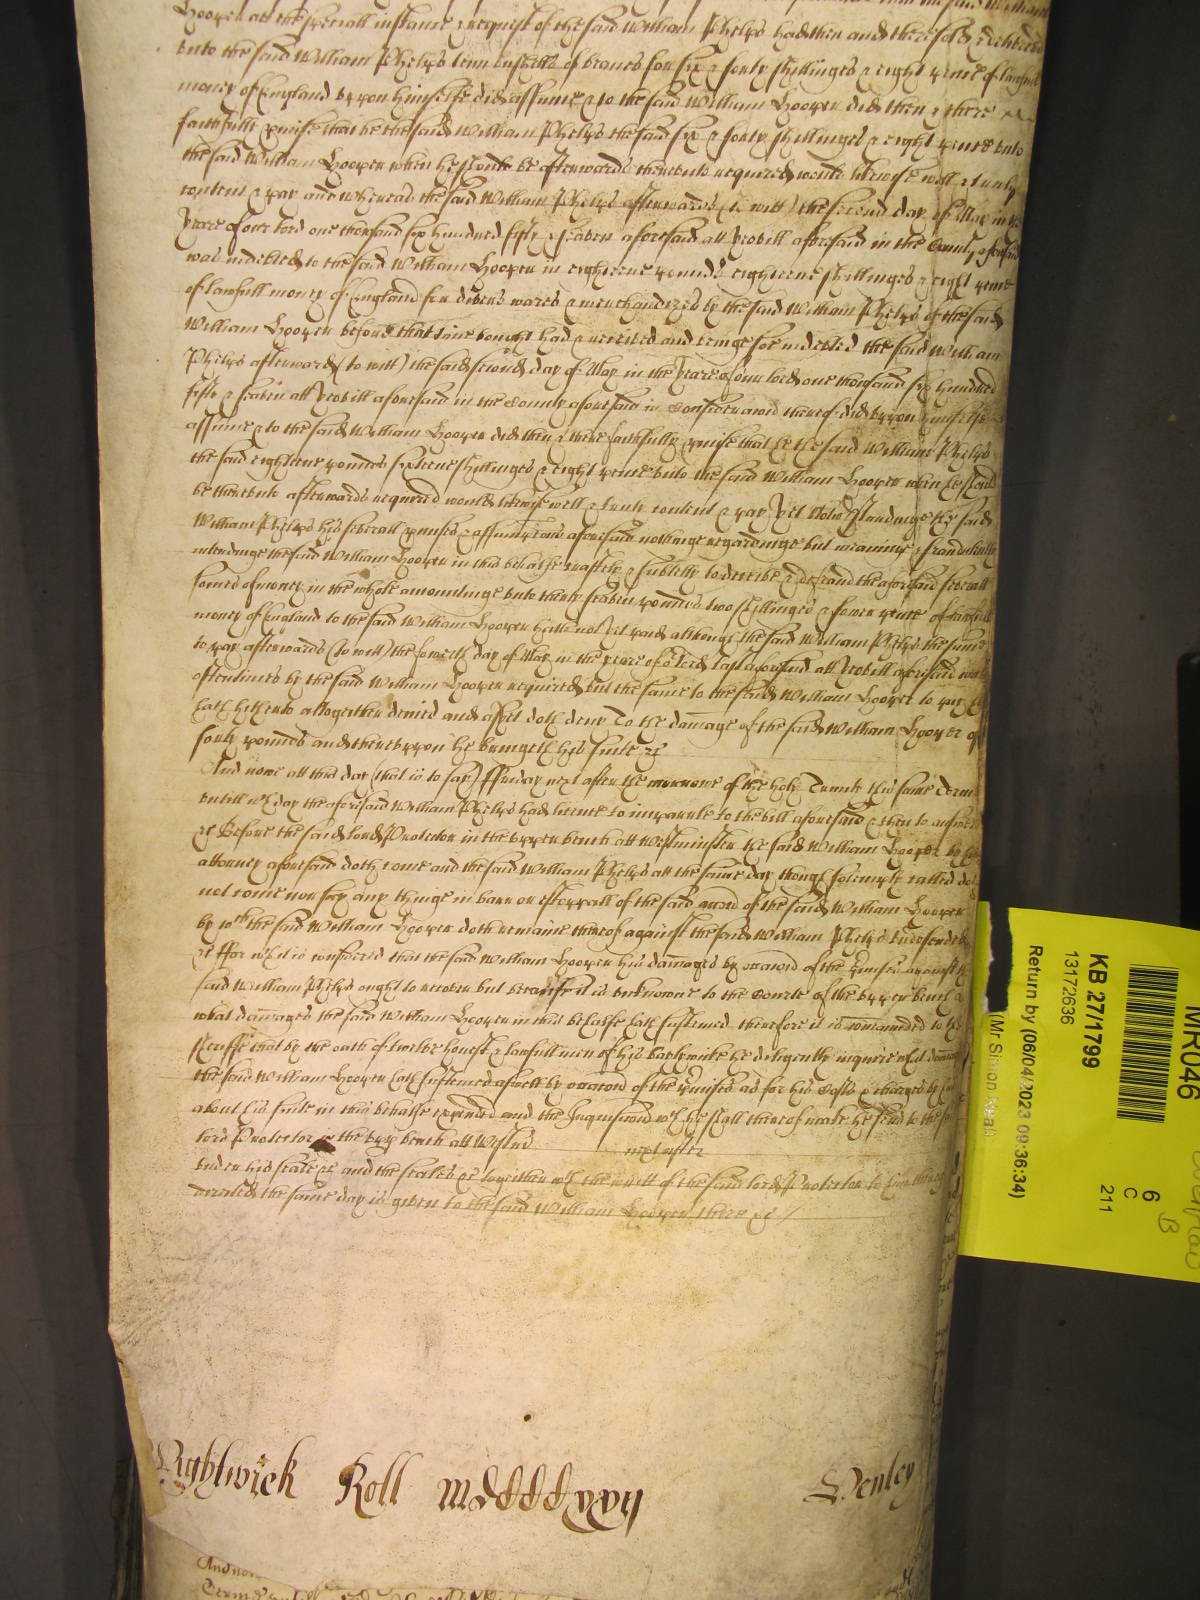 Hooper att the speciall instance & request of the said William Phelps had then and there sold & delivered
unto the said William Phelps tenn bushells of beanes for six & forty shillinges & eight pence of lawfull
money of England upon himselfe did assume & to the said William Hooper did then & there
faithfully pmise that he the said William Phelps the said six & forty shillinges & eight pence unto
the said William Hooper when he should be afterwards thereunto required would likewise well & truly
content & pay and whereas the said William Phelps afterwards (to witt) the second day of May in the
yeare of our lord one thousand six hundred fifty & seaven aforesaid att Yeovill aforesaid in the County aforesaid
was indebted to the said William Hooper in eighteene pounds eighteene shillinges & eight pence
of lawfull money of England for divers wares & merchandizes by the said William Phelps of the said
William Hooper before that time bought had & received and beinge soe indebted the said William
Phelps afterwards (to witt) the said second day of May in the yeare of our lord one thousand six hundred
fifty & seaven att Yeovill aforesaid in the County aforesaid in consideracon thereof did upon himselfe
assume & to the said William Hooper did then & there faithfully pmise that he the said William Phelps
the said eighteene pounds eighteene shillinges & eight pence unto the said William Hooper when he should
be thereunto afterwards required would likewise well & truly content & pay Yet Notwthstandinge the said
William Phelps his severall pmises & assumptions aforesaid nothinge regardinge but meaninge & fraudulently
intendinge the said William Hooper in this behalfe craftily & subtilly to deceive & defraud the aforesaid severall
somes of money in the whole amountinge unto thirty seaven pounds two shillinges & fower pence of lawfull
money of England to the said William Hooper hath not yet paid although the said William Phelps the same
to pay afterwards (to witt) the fowerth day of May in the yeare of or lord last aforesaid att Yeovill aforesaid was
oftentimes by the said William Hooper required but the same to the said William Hooper to pay he
hath hitherto altogether denied and as yet doth deny To the damage of the said William Hooper of
forty pounds and thereupon he bringeth his suite &c
And nowe att this day (that is to say) ffriday next after the morrowe of the holy Trinity this same Terme
untill wch day the aforesaid William Phelps had licence to imparle to the bill aforesaid & then to answere
&c Before the said lord Protector in the upper bench att Westminster the said William Hooper by his
attorney aforesaid doth come and the said William Phelps att the same day though solemply called doth
not come nor say any thinge in barr or estoppall of the said accon of the said William Hooper
by wch the said William Hooper doth remaine thereof against the said William Phelps undefended
&c ffor wch it is considered that the said William Hooper his damages by occacon of the pmises against the
said William Phelps ought to recover but because it is unknowne to the Courte of the upper bench
what damages the said William Hooper in this behalfe hath susteined therefore it is commanded to the
Sheriffe that by the oath of twelve honest & lawfull men of his baylywicke he diligently inquire what damages
the said William Hooper hath susteined aswell by occacon of the pmises as for his Costs & charges by him
about his suite in this behalfe expended and the Inquisicon wch he shall thereof make he send to the said
lord Protector in the upp bench att Westmr next after
under his seale &c and the seales &c together wth the writt of the said lord Protector to him thereof
directed the same day is given to the said William Hooper there &c
Wightwick Roll MDCCCCxxii Henley
And now
MR046
KB 27/1799
13172636
Return by (06/04/2023 09:36:34)
(Mr Simon Neal)
6
C
211
B